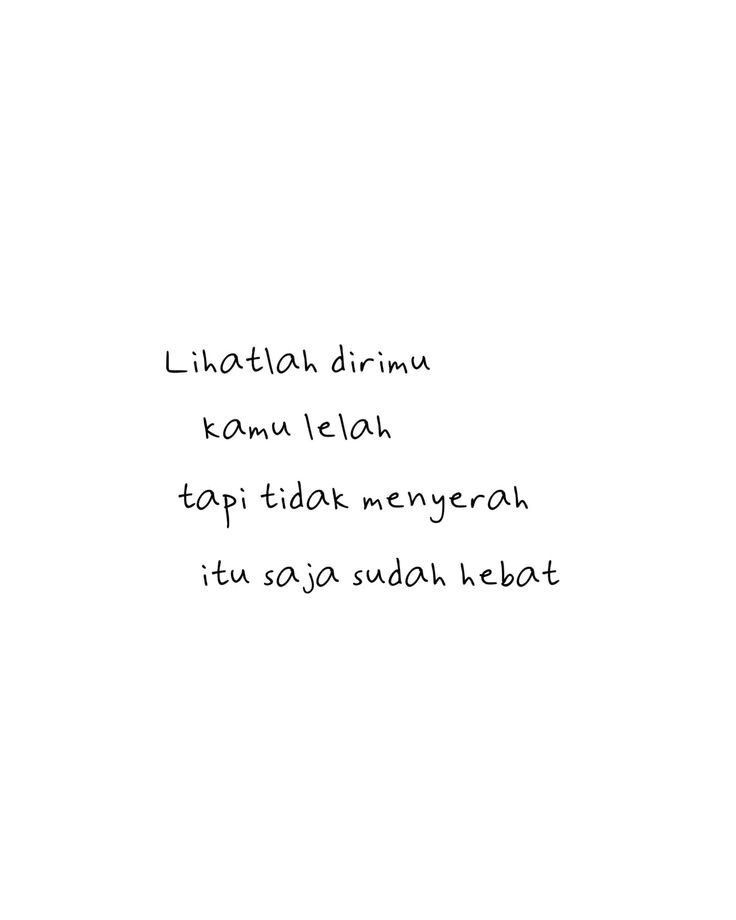 Lihatlah dirimu
kamu lelah
tapi tidak menyerah
itu saja sudah hebat